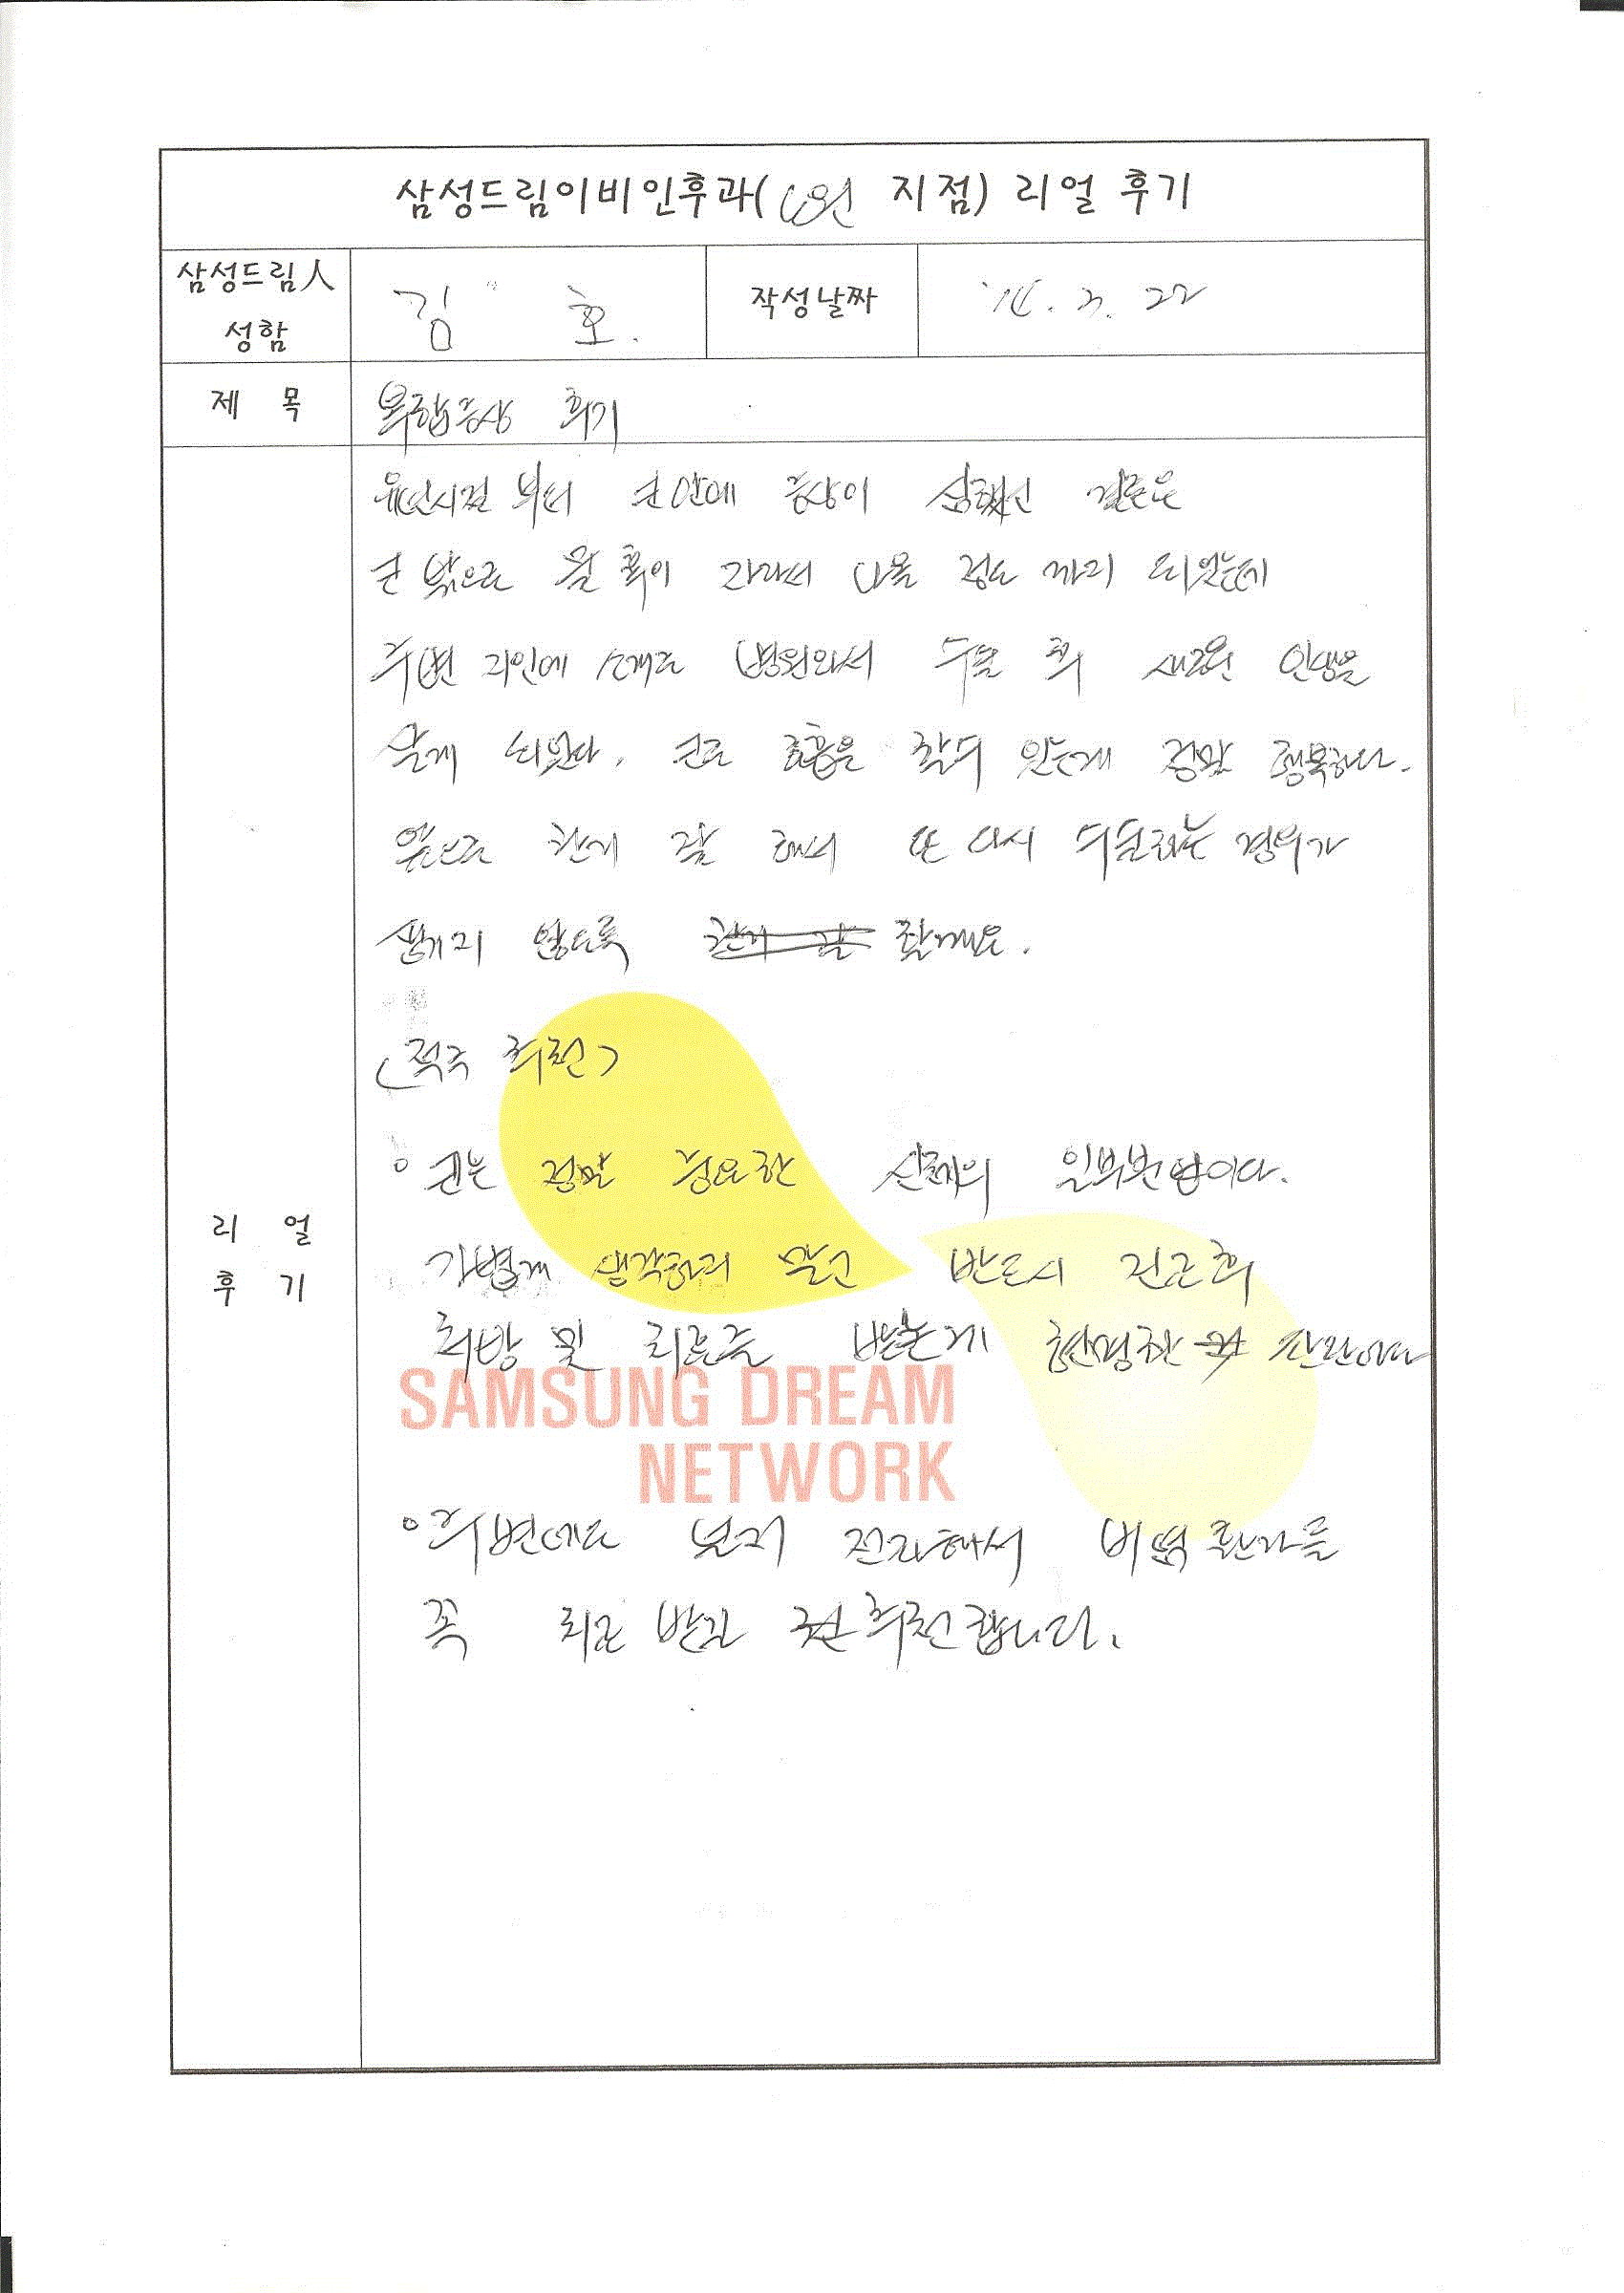 삼성드림이비인후과( 지점) 리얼 후기
삼성드림人
성함
김 호.
작성날짜
'14. 3. 22
제 목
복합증상 후기
유년시절 부터 코안에 증상이 심했던 결론은
코 밖으로 물혹이 자라서 나올 정도 까지 되었는데
주변 지인에 소개로 병원와서 수술 후 새로운 인생을
살게 되었다. 코로 호흡을 할수 있는게 정말 행복하다.
앞으로 관리 잘 해서 또 다시 수술하는 경우가
생기지 않도록 할께요.
(적극 추천)
○ 코는 정말 중요한 신체의 일부분이다.
가볍게 생각하지 말고 반드시 진료후
처방 및 치료를 받는게 현명한 판단이다
SAMSUNG DREAM
NETWORK
○ 주변에도 널리 전파해서 비염환자들
꼭 치료 받길 추천합니다.
리 얼
후 기